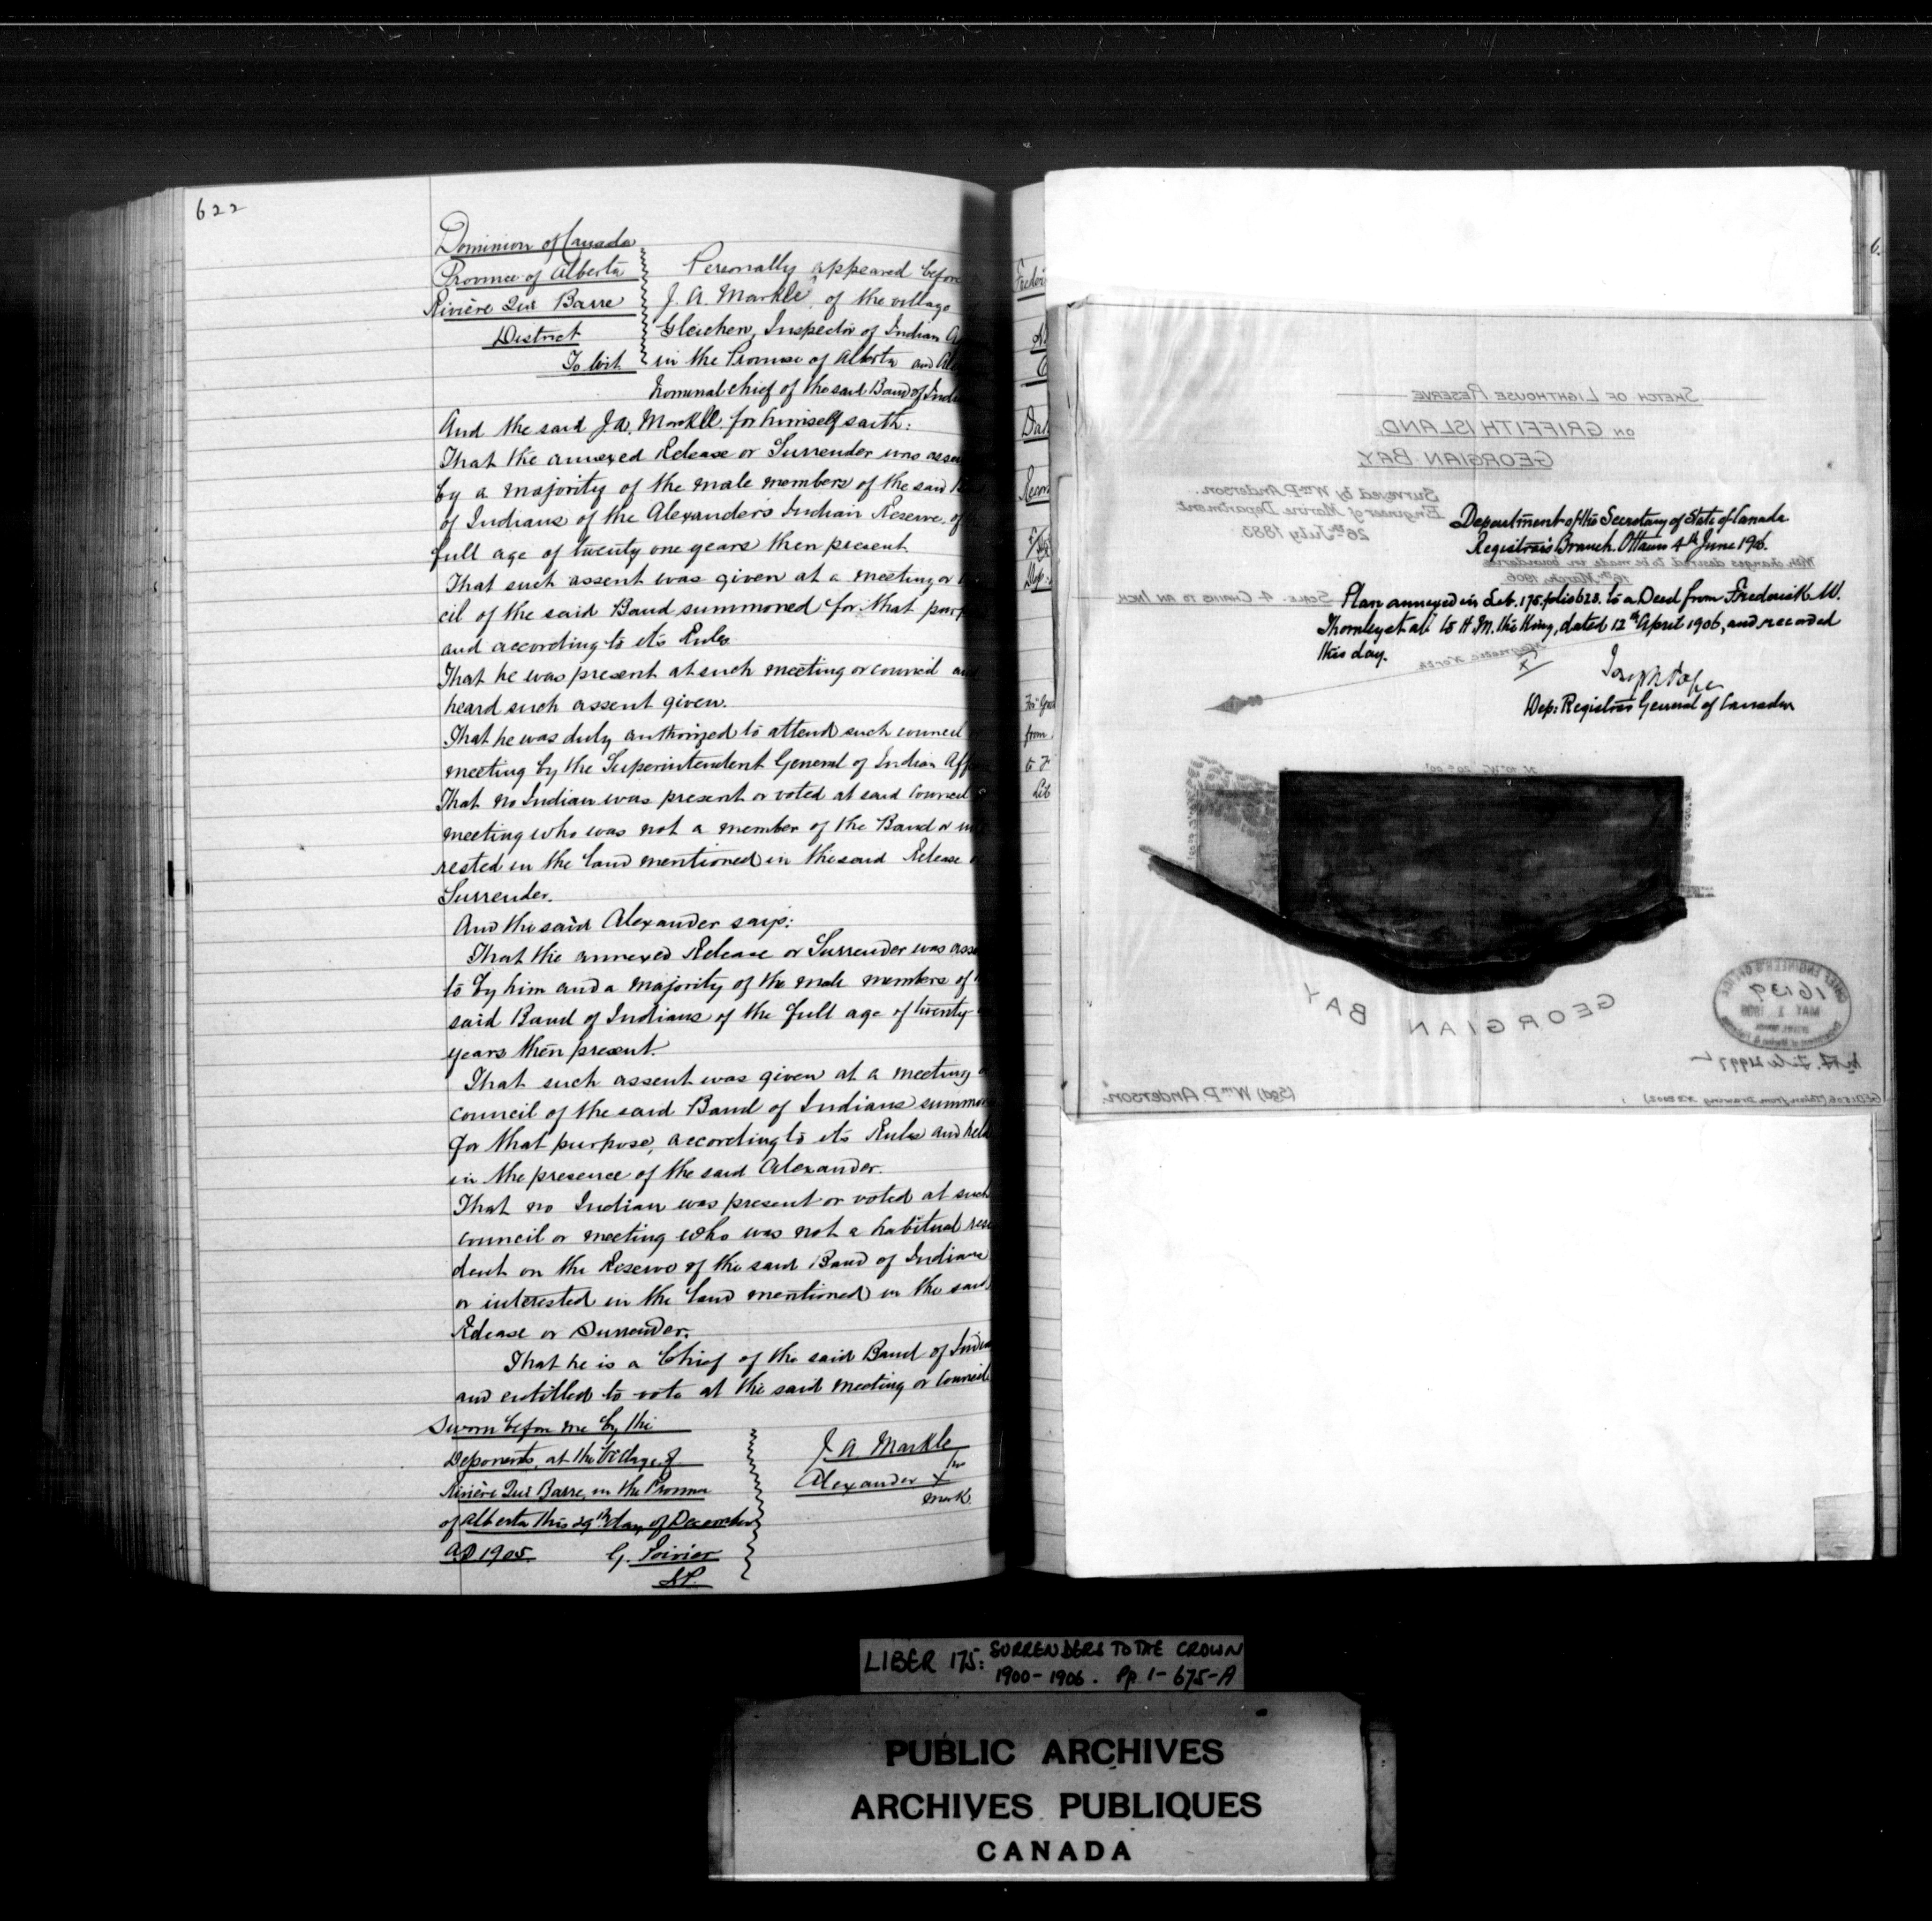 622
Dominion of Canada
Province of Alberta
Rivière Qui Barre
District
To Wit
Personally appeared before
J. A. Markle, of the village
Gleichen, Inspector of Indian
in the Province of Alberta and
Nominal chief of the said Band of
And the said J. A. Markle for himself saith:
That the annexed Release or Surrender was
by a majority of the male members of the said
of Indians of the Alexander's Indian Reserve, of
full age of twenty one years then present.
That such assent was given at a meeting or
cil of the said Band summoned for that
and according to its Rules
That he was present at such meeting or council and
heard such assent given.
That he was duly authorized to attend such council
meeting by the Superintendent General of Indian
That no Indian was present or voted at said Council
meeting who was not a member of the Band or
rested in the land mentioned in the said Release
Surrender.
And the said Alexander says:
That the annexed Release or Surrender was
to by him and a majority of the male members of
said Band of Indians of the full age of twenty
years then present.
That such assent was given at a meeting
council of the said Band of Indians
for that purpose, according to its Rules and held
in the presence of the said Alexander.
That no Indian was present or voted at such
council or meeting who was not a habitual resi
dent on the Reserve of the said Band of Indians
or interested in the land mentioned in the said
Release or Surrender.
That he is a Chief of the said Band of
and entitled to vote at the said meeting or Council
Sworn before me by the
Deponents, at the Village of
Rivière Qui Barre, in the Province
of Alberta this 29th day of December
AD 1905. G. Poirier
J.P.
J A. Markle
his
Alexander X
mark
SKETCH OF LIGHTHOUSE RESERVE
ON GRIFFITH ISLAND
GEORGIAN BAY
Surveyed by Wm P. Anderson.
Engineer of Marine Department
26th July 1883
With changes desired to be made in boundaries
16th March, 1906.
SCALE 4 CHAINS TO AN INCH
Department of the Secretary of State of Canada
Registrar's Branch. Ottawa 4th June 1906.
Plan annexed in Lib. 175. folio 623. to a Deed from Frederick W.
Thornley et al to H. M. the King, dated 12th April 1906, and recorded
this day.
Joseph Pope
Dep: Registrar General of Canada
Magnetic North
GEORGIAN BAY
CHIEF ENGINEER'S OFFICE
16139
MAY 1 1906
(Sgd) Wm P Anderson.
LIBER 175: SURRENDERS TO THE CROWN
1900-1906. Pp 1-675-A
PUBLIC ARCHIVES
ARCHIVES PUBLIQUES
CANADA